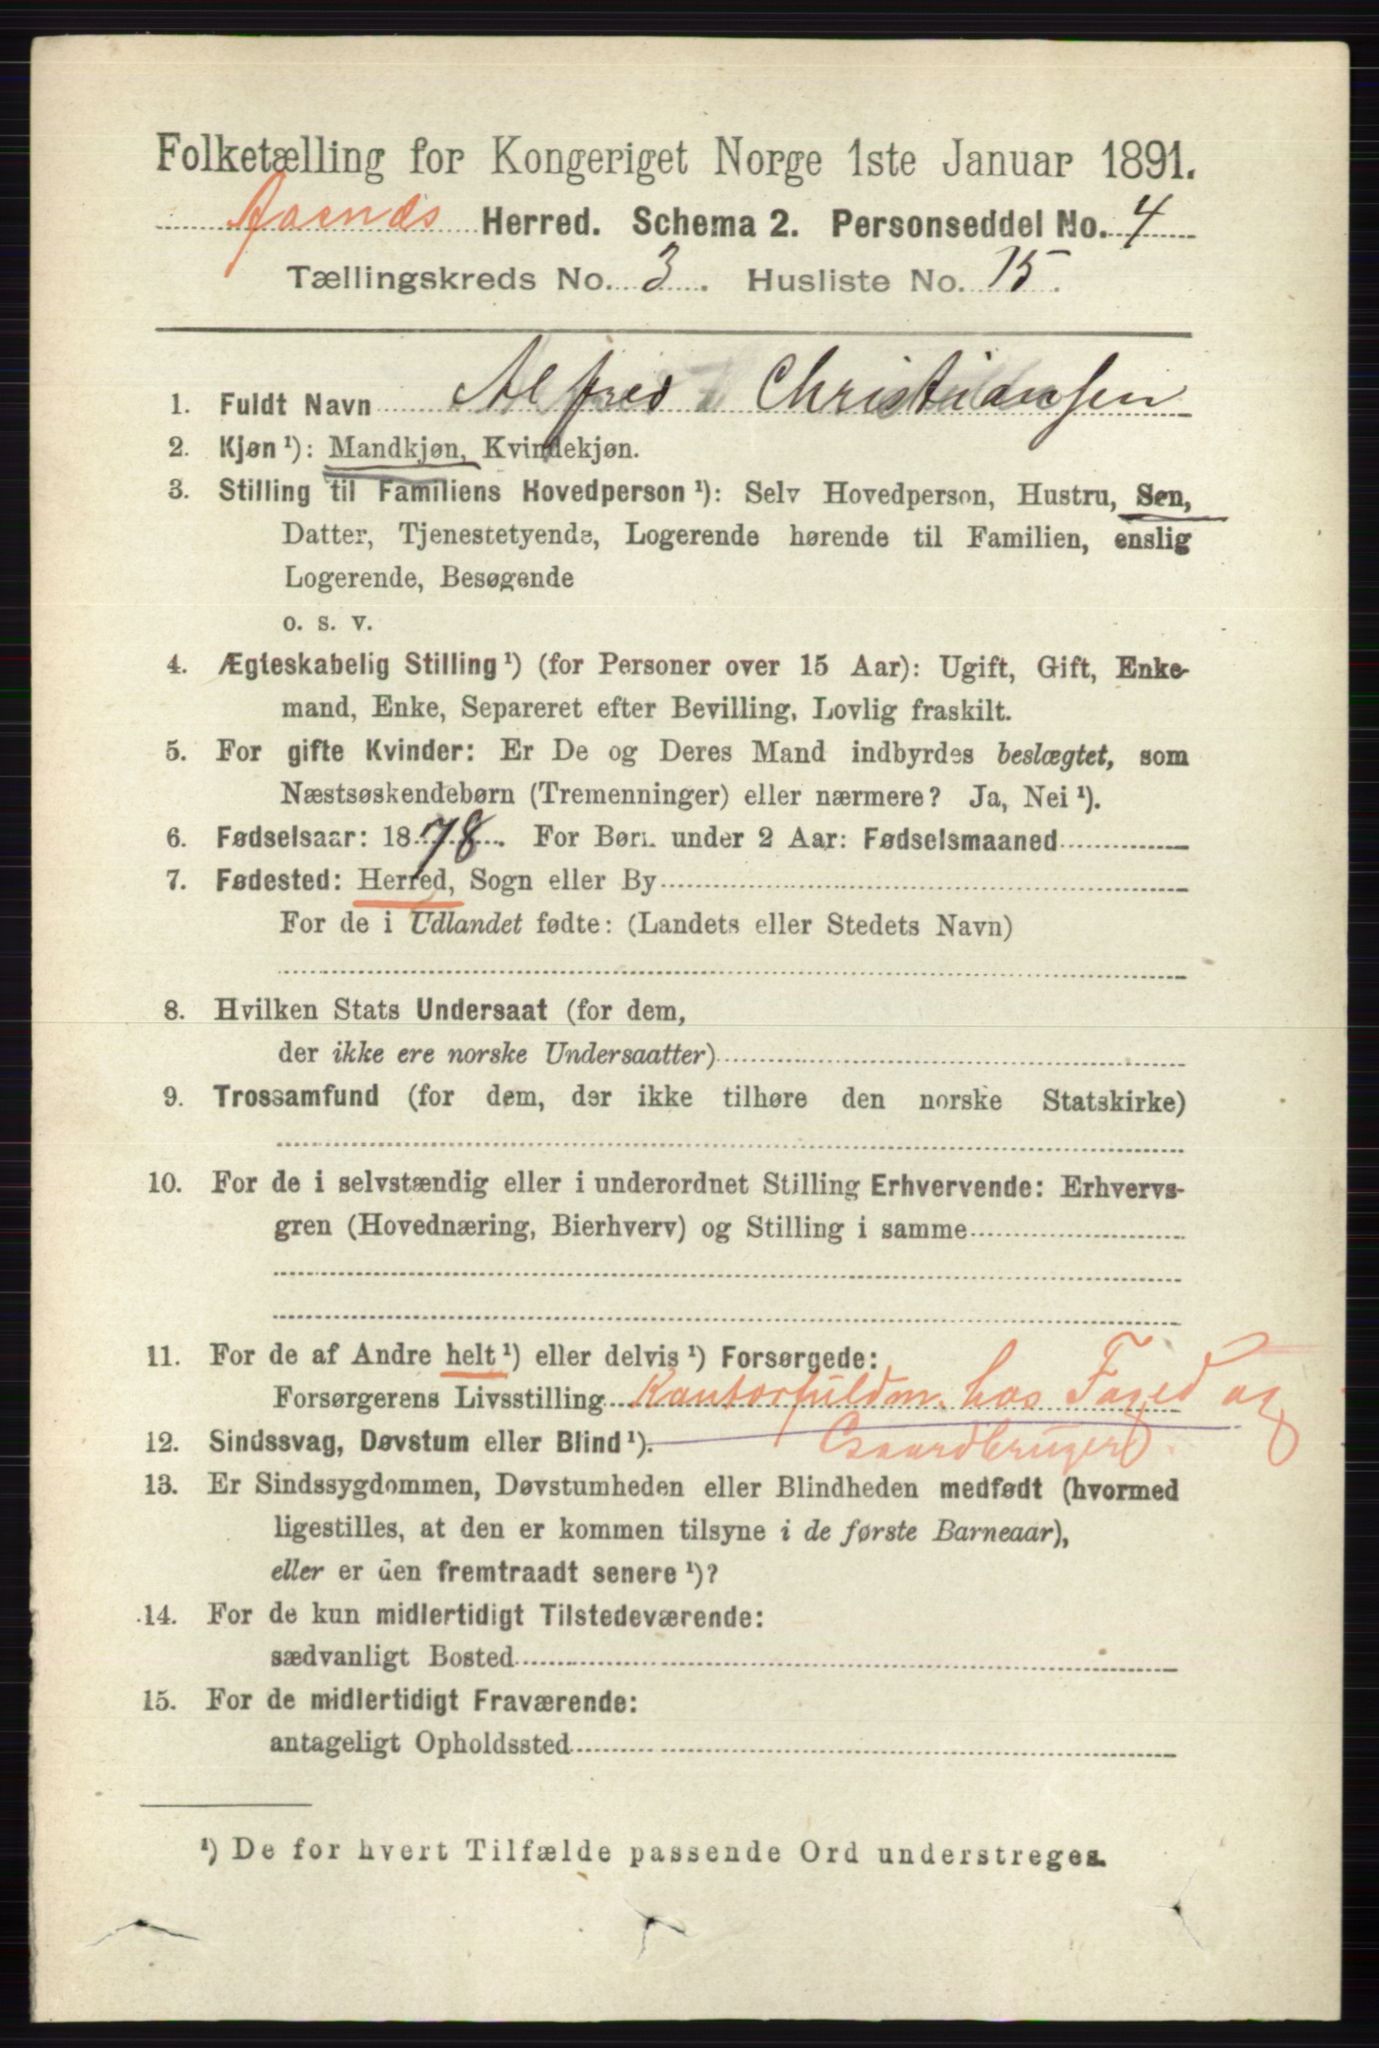 Folketælling for Kongeriget Norge 1ste Januar 1891.
Aasnæs Herred. Schema 2. Personseddel No. 4
Tællingskreds No. 3. Husliste No. 15.
1. Fuldt Navn Alfred Christiansen
2. Kjøn¹): Mandkjøn, Kvindekjøn.
3. Stilling til Familiens Hovedperson¹): Selv Hovedperson, Hustru, Søn,
Datter, Tjenestetyende, Logerende hørende til Familien, enslig
Logerende, Besøgende
o. s. v.
4. Ægteskabelig Stilling¹) (for Personer over 15 Aar): Ugift, Gift, Enke-
mand, Enke, Separeret efter Bevilling, Lovlig fraskilt.
5. For gifte Kvinder: Er De og Deres Mand indbyrdes beslægtet, som
Næstsøskendebørn (Tremenninger) eller nærmere? Ja, Nei¹).
6. Fødselsaar: 1878. For Børn under 2 Aar: Fødselsmaaned
7. Fødested: Herred, Sogn eller By
For de i Udlandet fødte: (Landets eller Stedets Navn)
8. Hvilken Stats Undersaat (for dem,
der ikke ere norske Undersaatter)
9. Trossamfund (for dem, der ikke tilhøre den norske Statskirke)
10. For de i selvstændig eller i underordnet Stilling Erhvervende: Erhvervs-
gren (Hovednæring, Bierhverv) og Stilling i samme
11. For de af Andre helt¹) eller delvis¹) Forsørgede:
Forsørgerens Livsstilling Kontorfuldm. hos Foged og
12. Sindssvag, Døvstum eller Blind¹). Gaardbruger.
13. Er Sindssygdommen, Døvstumheden eller Blindheden medfødt (hvormed
ligestilles, at den er kommen tilsyne i de første Barneaar),
eller er den fremtraadt senere¹)?
14. For de kun midlertidigt Tilstedeværende:
sædvanligt Bosted
15. For de midlertidigt Fraværende:
antageligt Opholdssted
¹) De for hvert Tilfælde passende Ord understreges.